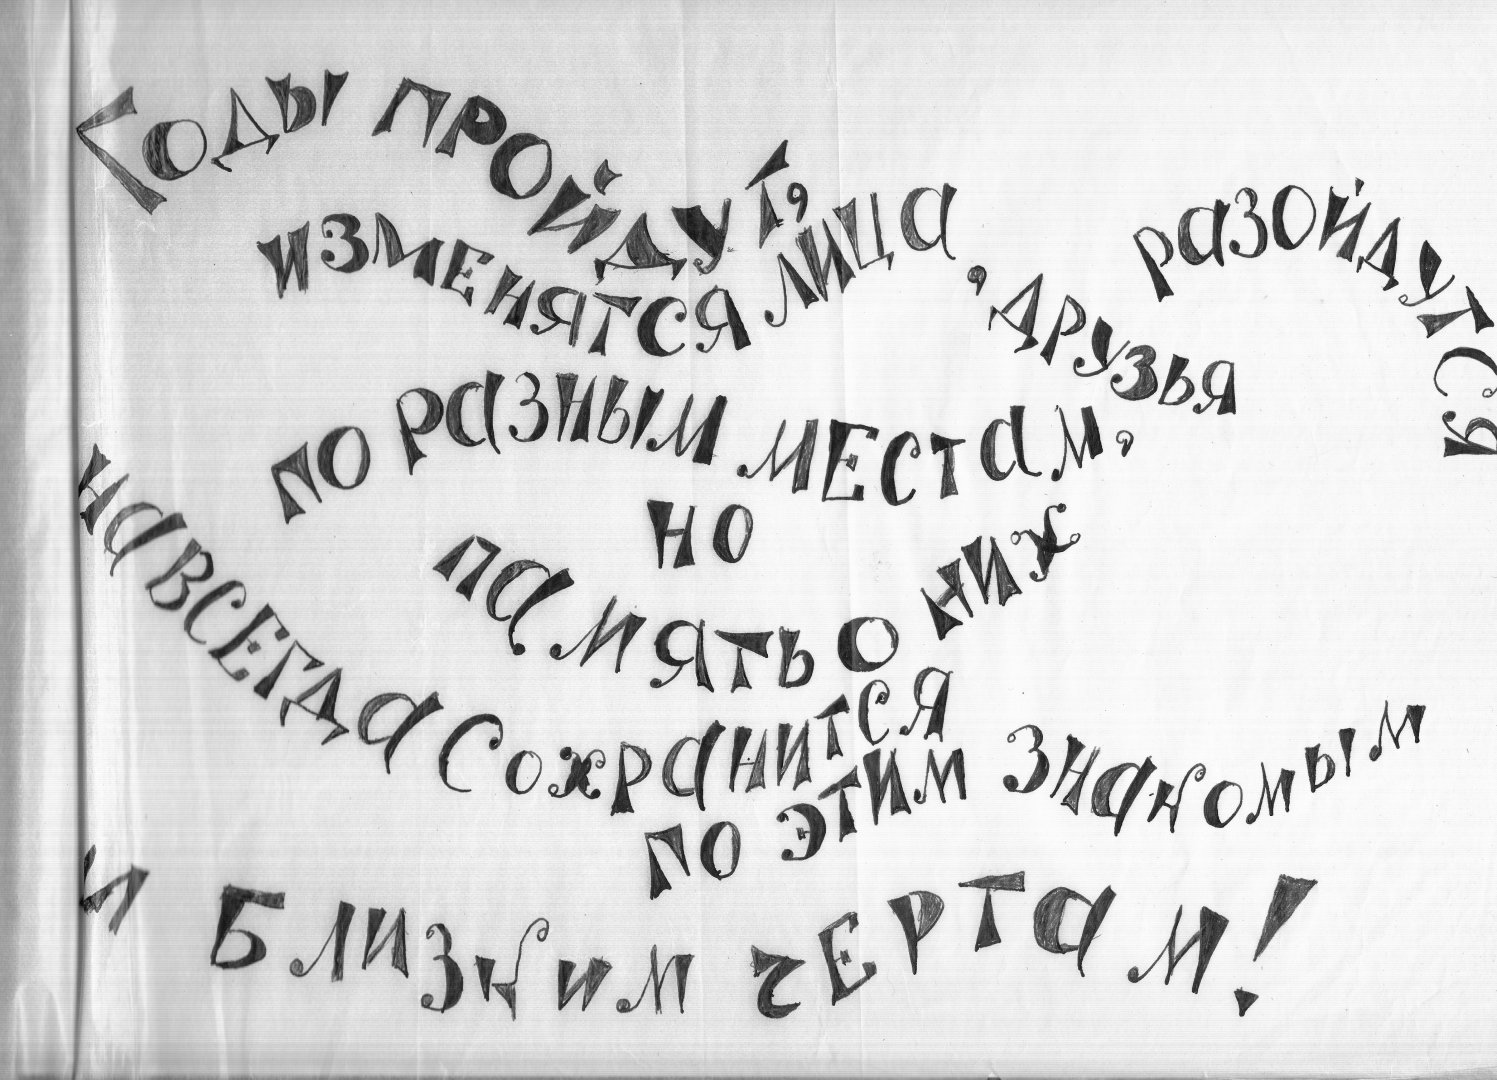 Годы пройдут,
изменятся лица,
друзья
разойдутся
по разным местам,
но
память о них
навсегда сохранится
по этим знакомым
и близким чертам!